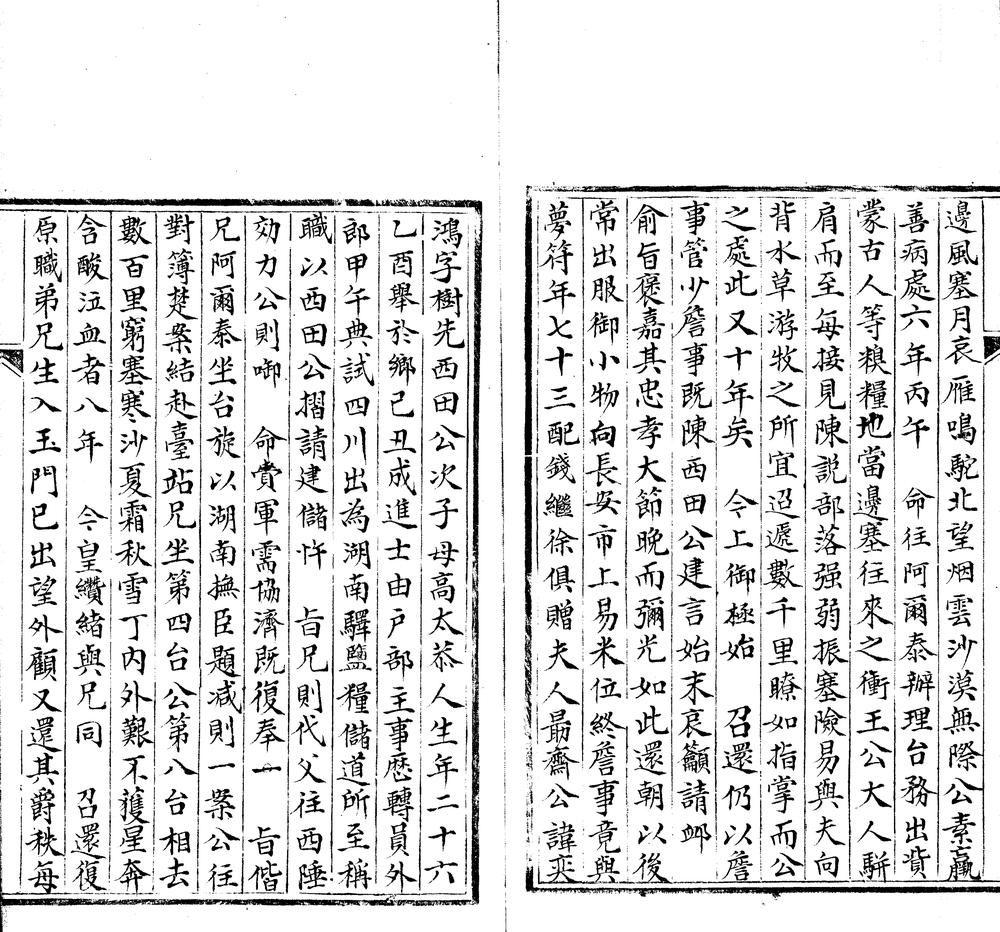 邊風塞月哀雁鳴駝北望烟雲沙漠無際公素羸
善病處六年丙午　命往阿爾泰辦理台務出貲
蒙古人等糗糧地當邊塞往來之衝王公大人駢
肩而至每接見陳説部落强弱振塞險易與夫向
背水草游牧之所宜迢遞數千里瞭如指掌而公
之處此又十年矣　今上御極始　召還仍以詹
事管少詹事既陳西田公建言始末哀籲請卹
俞旨褒嘉其忠孝大節晚而彌光如此還朝以後
常出服御小物向長安市上易米位終詹事竟與
夢符年七十三配錢繼徐俱贈夫人最齋公諱奕
鴻字樹先西田公次子母高太恭人生年二十六
乙酉舉於鄉己丑成進士由戸部主事歷轉員外
郎甲午典試四川出為湖南驛鹽糧儲道所至稱
職以西田公摺請建儲忤　旨兄則代父往西陲
効力公則啣　命賫軍需協濟既復奉　旨偕
兄阿爾泰坐台旋以湖南撫臣題减則一案公往
對簿楚案結赴臺站兄坐第四台公第八台相去
數百里窮塞寒沙夏霜秋雪丁內外艱不獲星奔
含酸泣血者八年　今皇纘緒與兄同　召還復
原職弟兄生入玉門已出望外顧又還其爵秩每